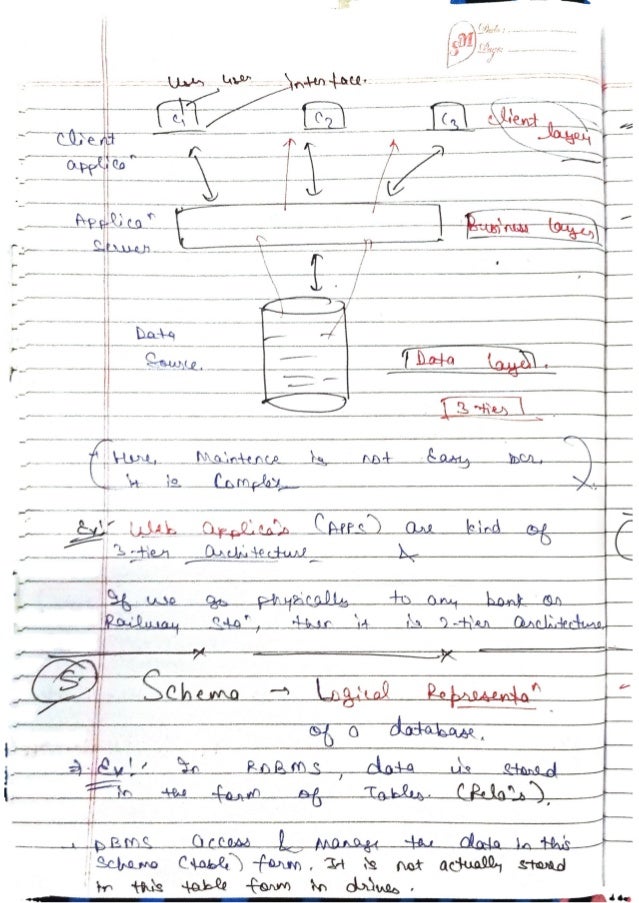 Date:
Page:
User user interface.
C1 C2 C3 client layer
Client
applicaⁿ
Applicaⁿ
Server
Business layer
Data
Source.
Data layer.
3-tiers
Here, Maintence is not Easy bcz,
it is Complex
Ex:- Web applica's (APPS) are kind of
3-tier architecture
If we go physically to any bank or
Railway staⁿ, then it is 2-tier architecture
5. Schema → Logical Representaⁿ
of a database.
⇒ Ex:- In RDBMS, data is stored
in the form of Tables. (Rela's).
DBMS access & manage the data in this
Schema (table) form. It is not actually stored
in this table form in drives.